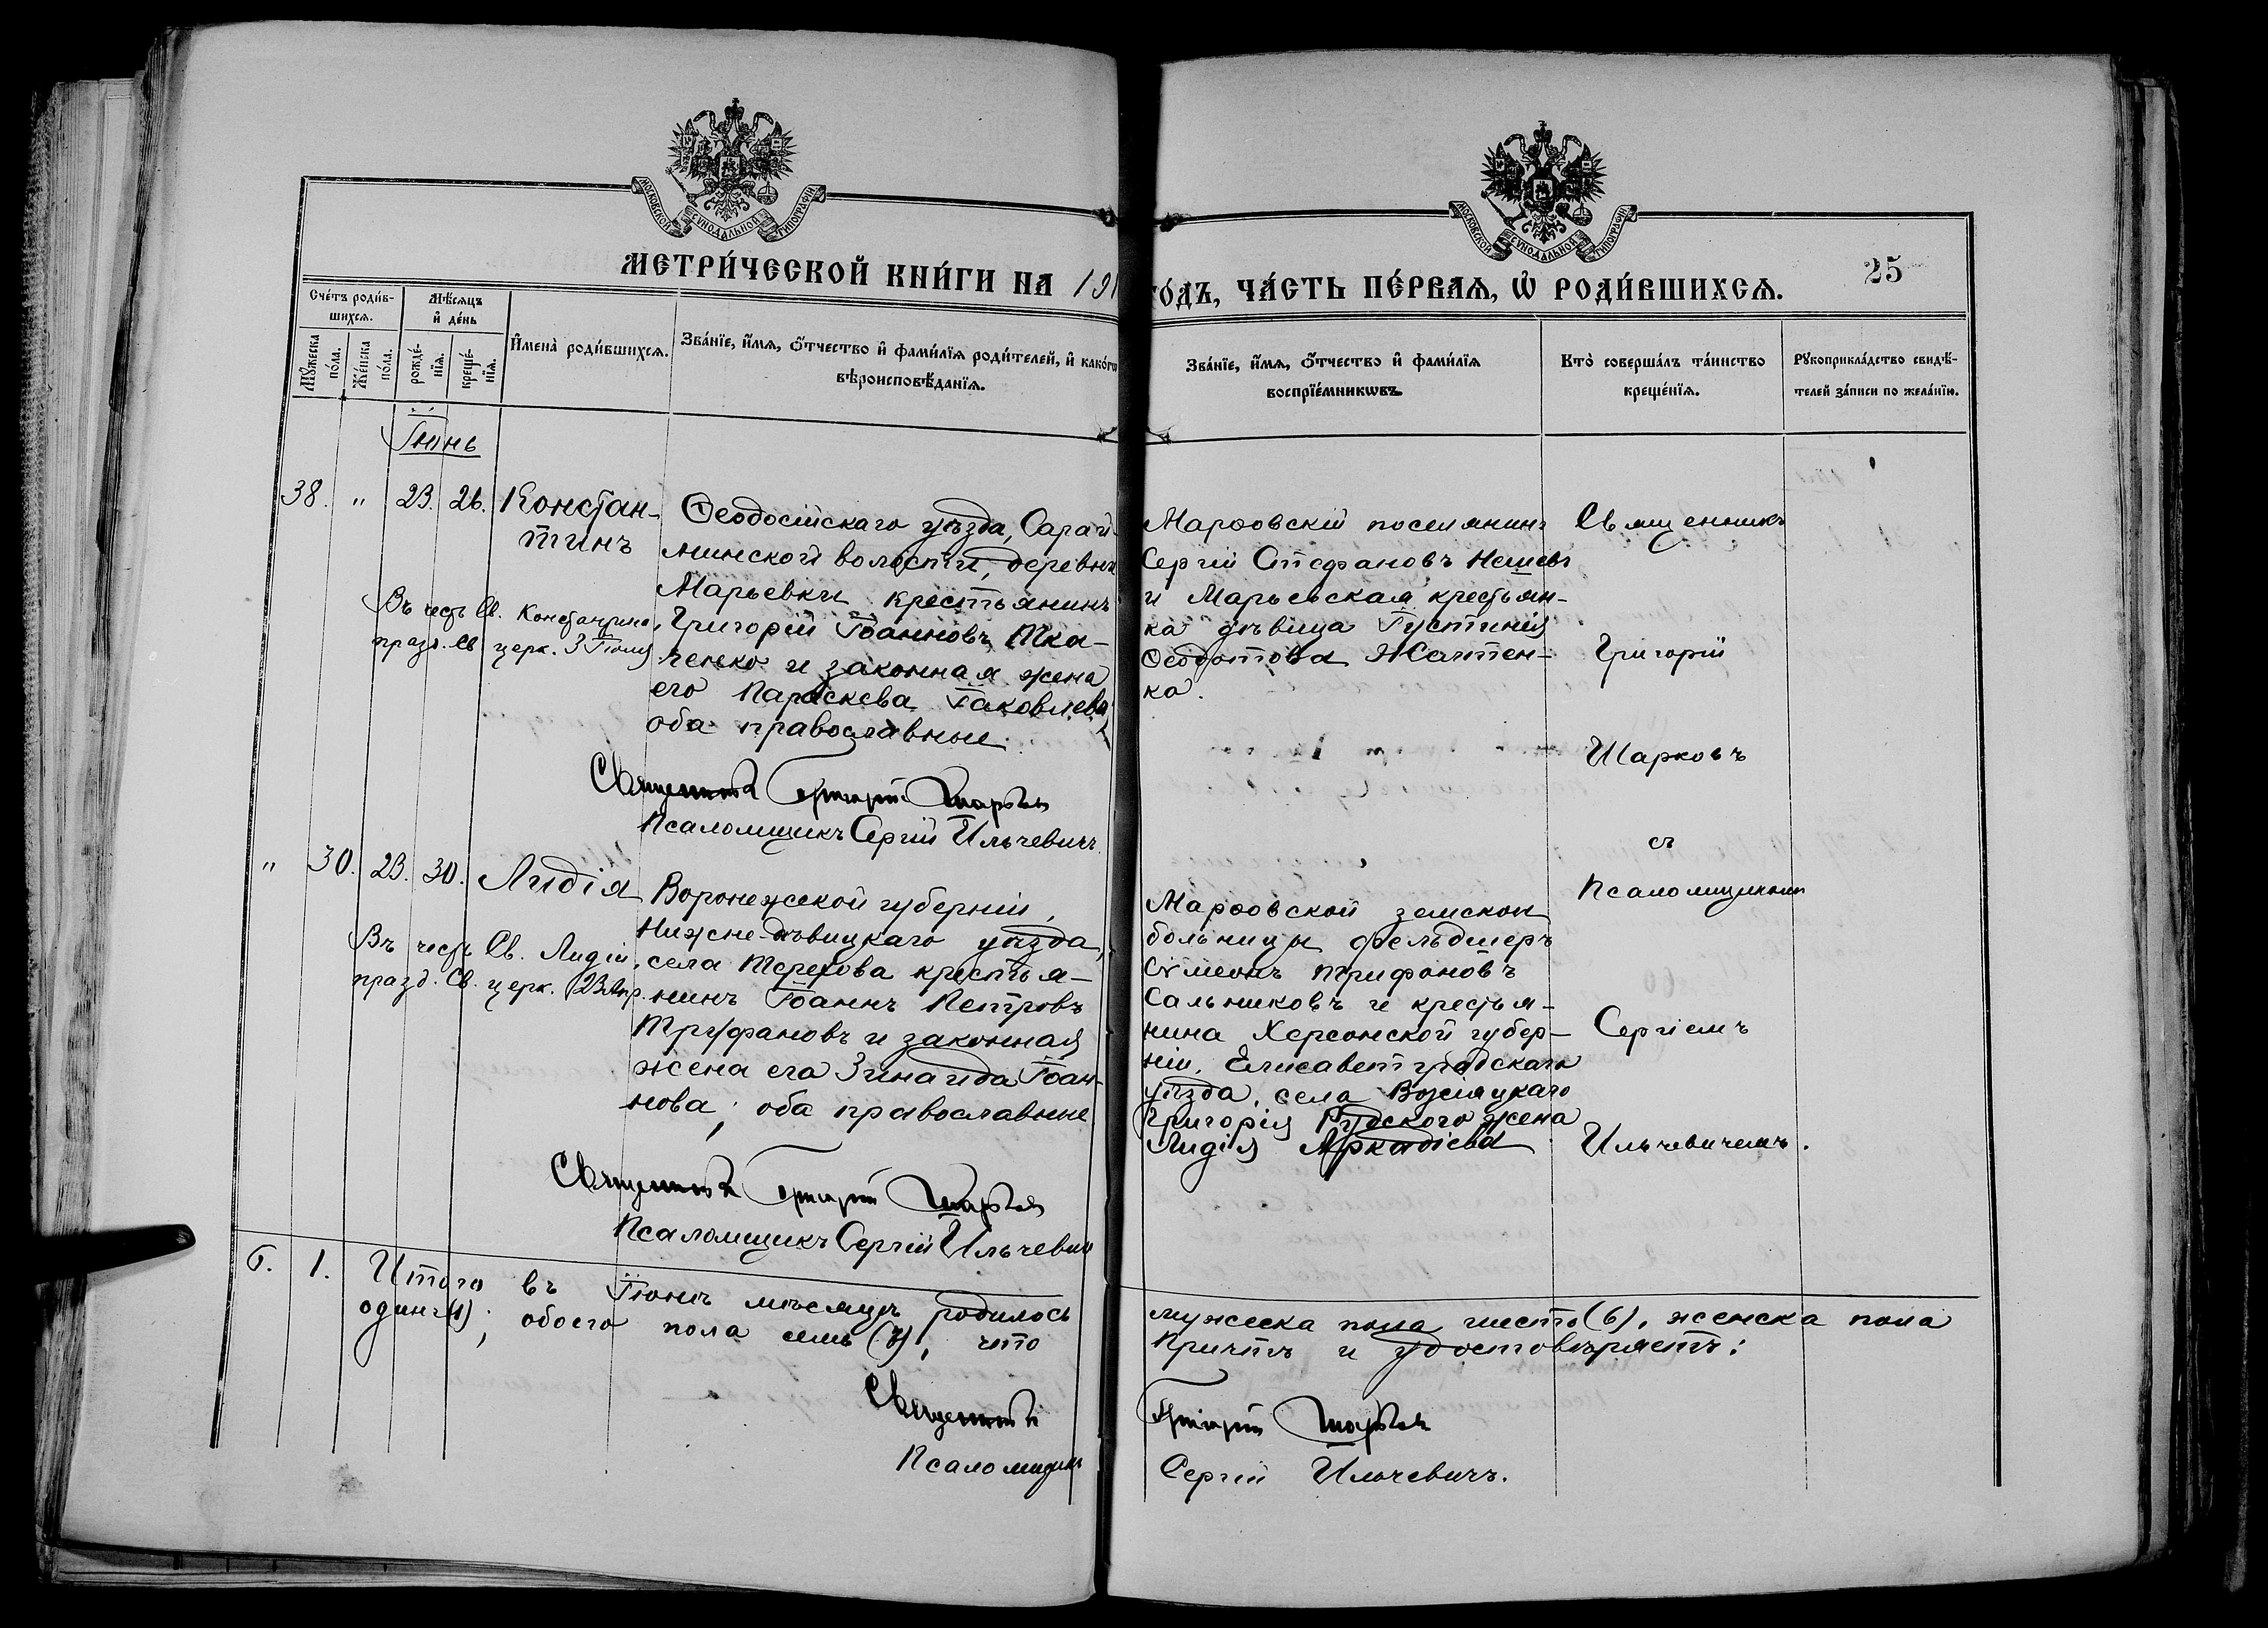 МОСКОВСКОЙ СѴНОДАЛЬНОЙ ТИПОГРАФІИ
МОСКОВСКОЙ СѴНОДАЛЬНОЙ ТИПОГРАФІИ
МЕТРИ́ЧЕСКОЙ КНИ́ГИ НА 191
ГО́ДЪ, ЧА́СТЬ ПЕ́РВАЯ, Ѡ РОДИ́ВШИХСЯ.
25
Сче́тъ роди́в-
шихся.
Мѣ́сяцъ
и де́нь
Му́жеска
по́ла.
Же́нска
по́ла.
рожде́-
нія.
креще́-
нія.
Имена̀ роди́вшихся.
Зва́ніе, и́мя, о́тчество и фами́лія роди́телей, и како́гѡ
вѣроисповѣ́данія.
Зва́ніе, и́мя, о́тчество и фами́лія
воспріе́мникѡвъ.
Кто̀ соверша́лъ та́инство
креще́нія.
Рукоприкла́дство свидѣ́-
телей за́писи по жела́нію.
Іюнь
38. " 23. 26. Констан-
тинъ
Въ честь Св. Константина,
празд. Св. церк. 3 Іюля
Ѳеодосійскаго уѣзда, Сарай-
минской волости, деревни
Марьевки крестьянинъ
Григорій Іоанновъ Тка-
ченко и законная жена
его Параскева Іаковлева,
оба православные.
Священникъ Григорій Шарковъ
Псаломщикъ Сергій Ильчевичъ
Марѳовскій поселянинъ
Сергій Стефановъ Нешевъ
и Марьевская крестьян-
ка дѣвица Іустинія
Ѳеодотова
ка.
Священникъ
Григорій
Шарковъ
съ
Псаломщикомъ
Сергіемъ
Ильчевичемъ.
" 30. 23. 30. Лидія
Въ честь Св. Лидіи,
празд. Св. церк. 23 Мар.
Воронежской губерніи,
Нижне-дѣвицкаго уѣзда,
села Терехова крестья-
нинъ Іоаннъ Петровъ
Труфановъ и законная
жена его Зинаида Іоан-
нова, оба православные
Священникъ Григорій Шарковъ
Псаломщикъ Сергій Ильчевичъ
Марѳовской земской
больницы фельдшеръ
Сѵмеонъ Трифоновъ
Сальниковъ и крестья-
нина Херсонской губер-
ніи, Елисаветградскаго
уѣзда, села
Григорія Рудского жена
Лидія Аркадіева
6. 1. Итого въ Іюнѣ мѣсяцѣ родилось
мужеска пола шесть (6), женска пола
одинъ (1), обоего пола семь (7), что
Причтъ и удостовѣряетъ:
Священникъ Григорій Шарковъ
Псаломщикъ Сергій Ильчевичъ.